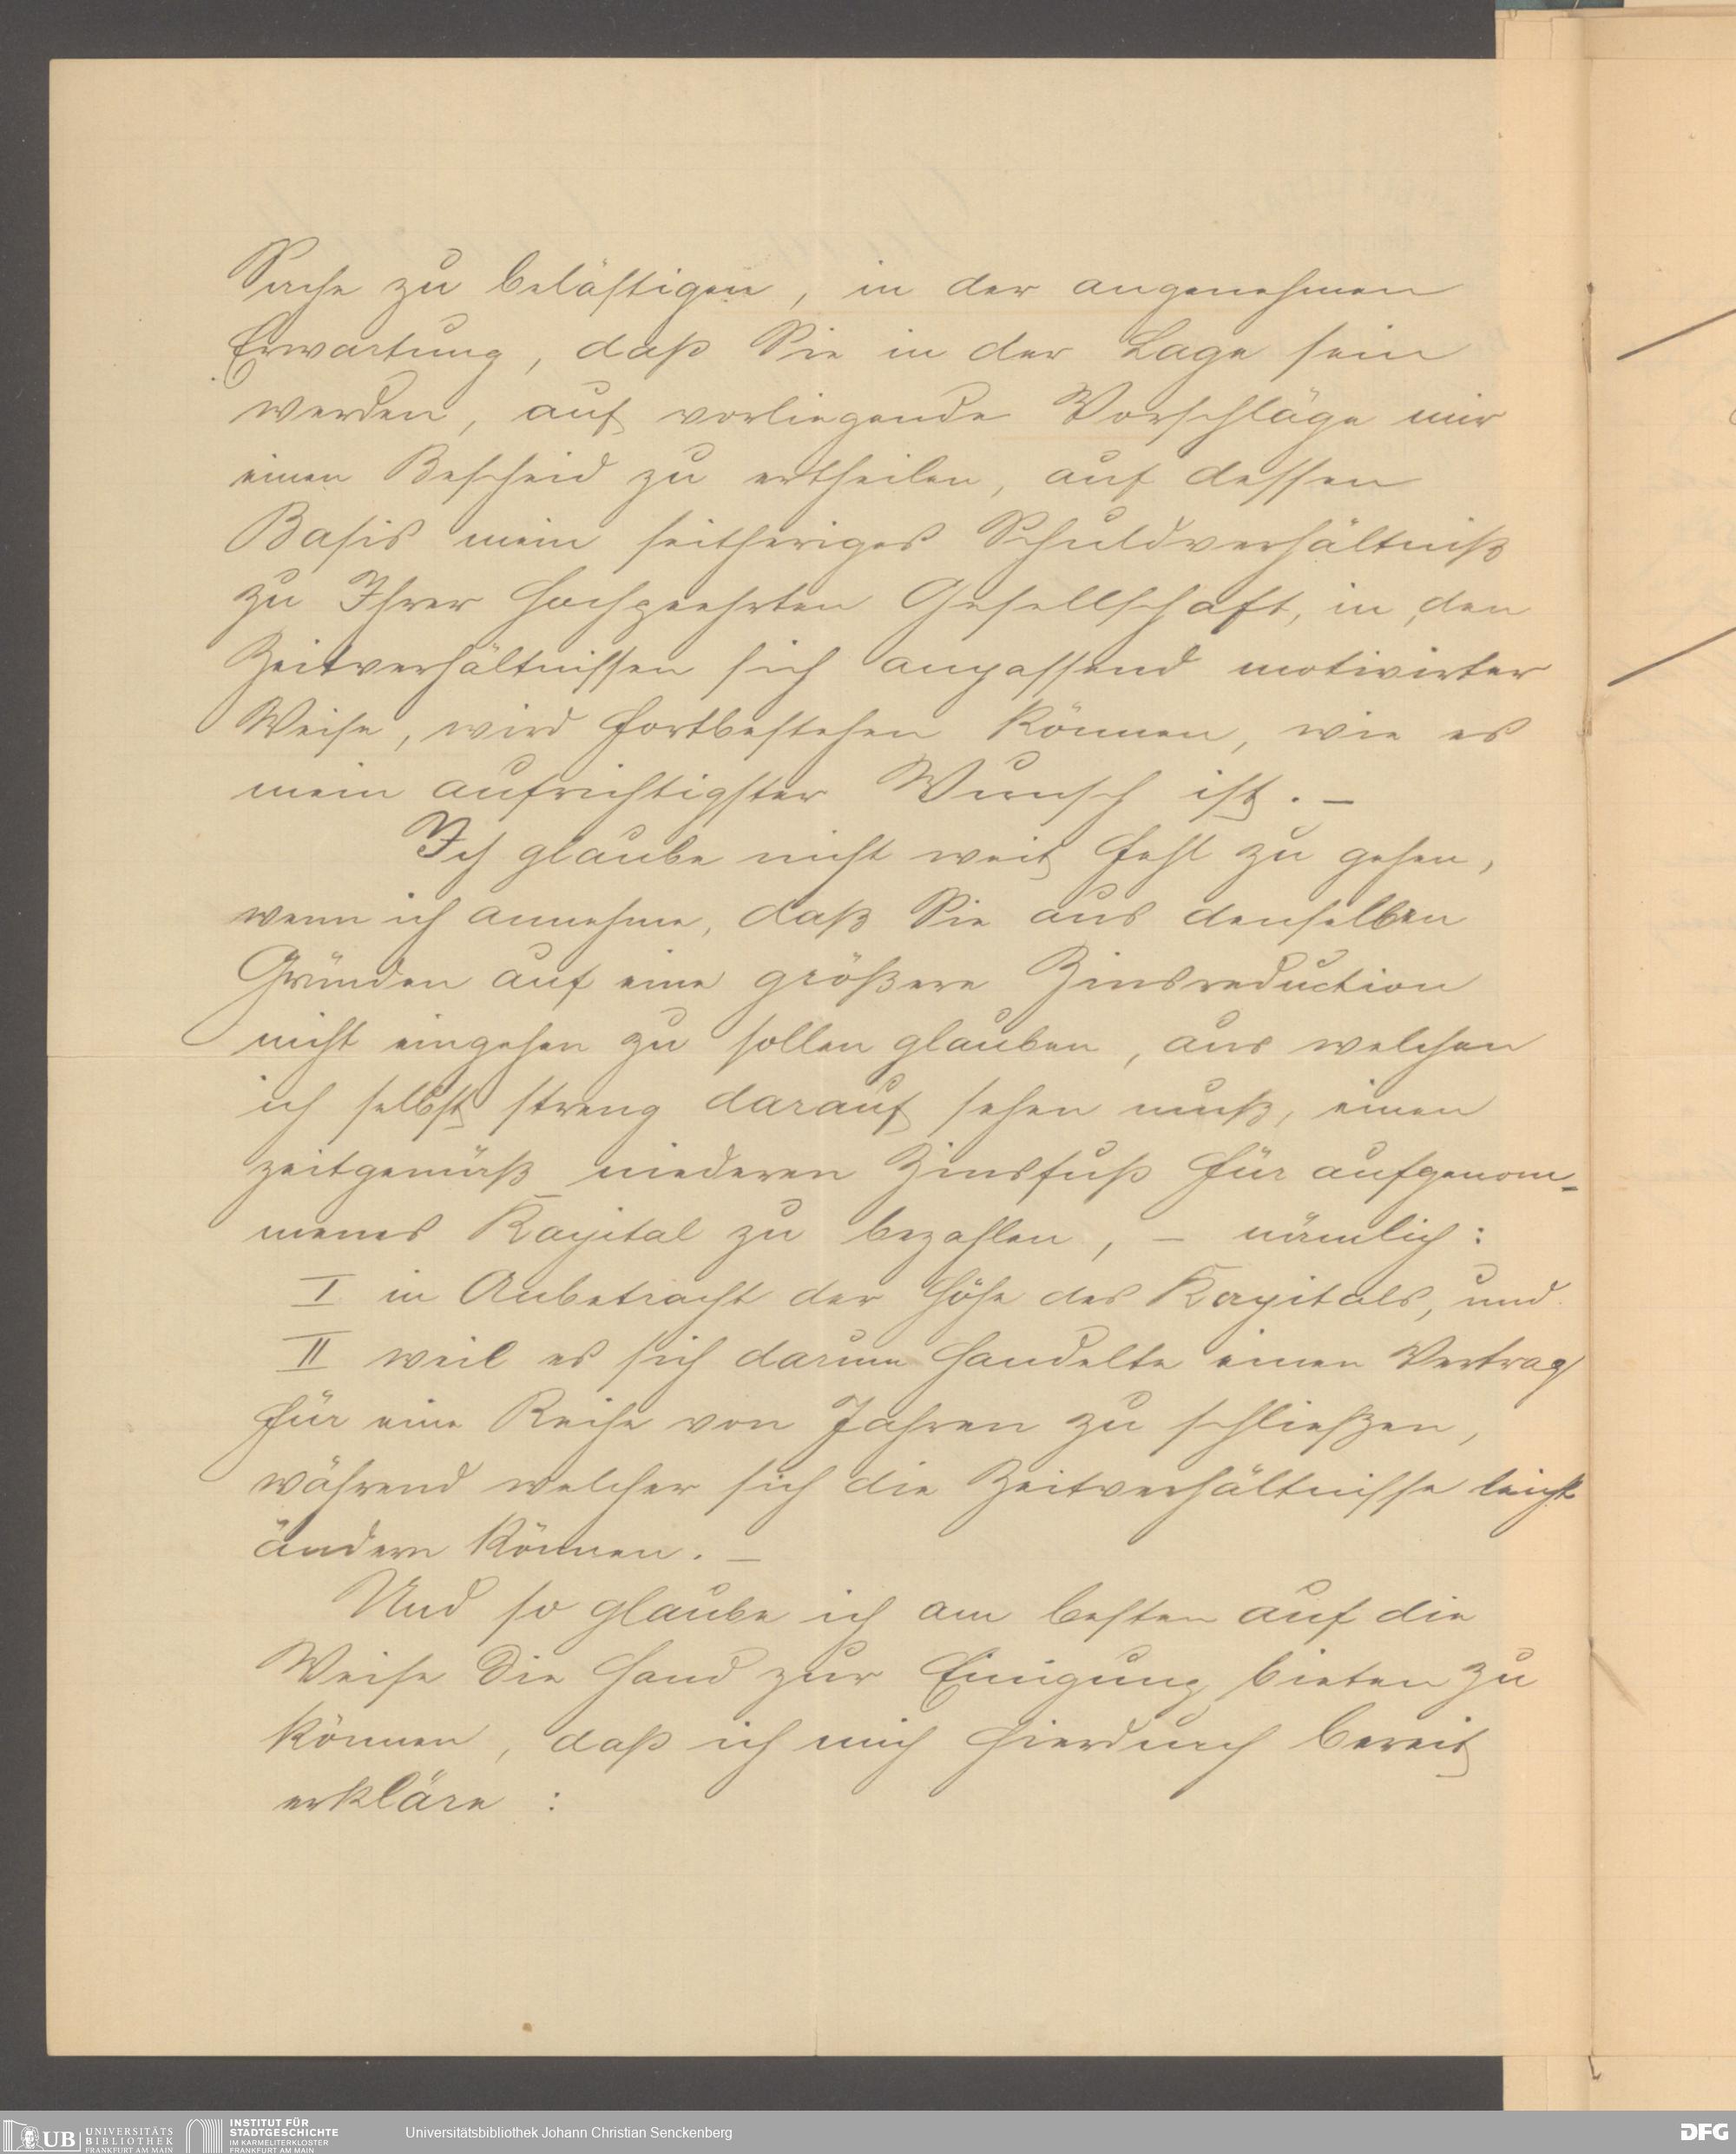 Sache zu belästigen, in der angenehmen
Erwartung, daß Sie in der Lage sein
werden, auf vorliegende Vorschläge mir
einen Bescheid zu ertheilen, auf dessen
Basis mein seitheriges Schuldverhältniß
zu Ihrer hochgeehrten Gesellschaft, in, den
Zeitverhältnissen sich anpassend motivirter
Weise, wird fortbestehen können, wie es
mein aufrichtigster Wunsch ist. —
Ich glaube nicht weit fehl zu gehen,
wenn ich annehme, daß Sie aus denselben
Gründen auf eine größere Zinsreduction
nicht eingehen zu sollen glauben, aus welchen
ich selbst streng darauf sehen muß, einen
zeitgemäß niederen Zinsfuß für aufgenom-
menes Kapital zu bezahlen, — nämlich:
I in Anbetracht der Höhe des Kapitals, und
II weil es sich darum handelte einen Vertrag
für eine Reihe von Jahren zu schließen,
während welcher sich die Zeitverhältnisse leicht
ändern können. —
Und so glaube ich am besten auf die
Weise die Hand zur Einigung bieten zu
können, daß ich mich hierdurch bereit
erkläre :
UB UNIVERSITÄTS
BIBLIOTHEK
FRANKFURT AM MAIN
INSTITUT FÜR
STADTGESCHICHTE
IM KARMELITERKLOSTER
FRANKFURT AM MAIN
Universitätsbibliothek Johann Christian Senckenberg
DFG